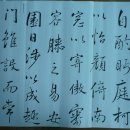 自酌眄庭柯
以怡顏倚南
窗以寄傲審
容膝之易安
園日涉以成趣
門雖設而常